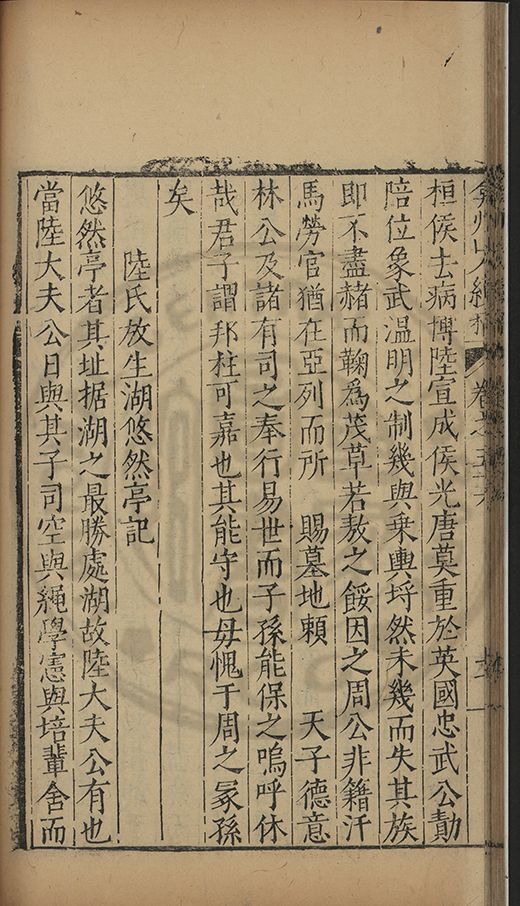 弇州山人續稿 卷之五十六
桓侯去病博陸宣成侯光唐莫重於英國忠武公勣
陪位象武溫明之制幾與乗輿埒然未幾而失其族
即不盡赭而鞠爲茂草若敖之餒因之周公非籍汗
馬勞官猶在亞列而所 賜墓地賴 天子德意
林公及諸有司之奉行易世而子孫能保之嗚呼休
哉君子謂邦柱可嘉也其能守也毋愧于周之冡孫
矣
陸氏放生湖悠然亭記
悠然亭者其址据湖之最勝處湖故陸大夫公有也
當陸大夫公日與其子司空與繩學憲與培輩舍而